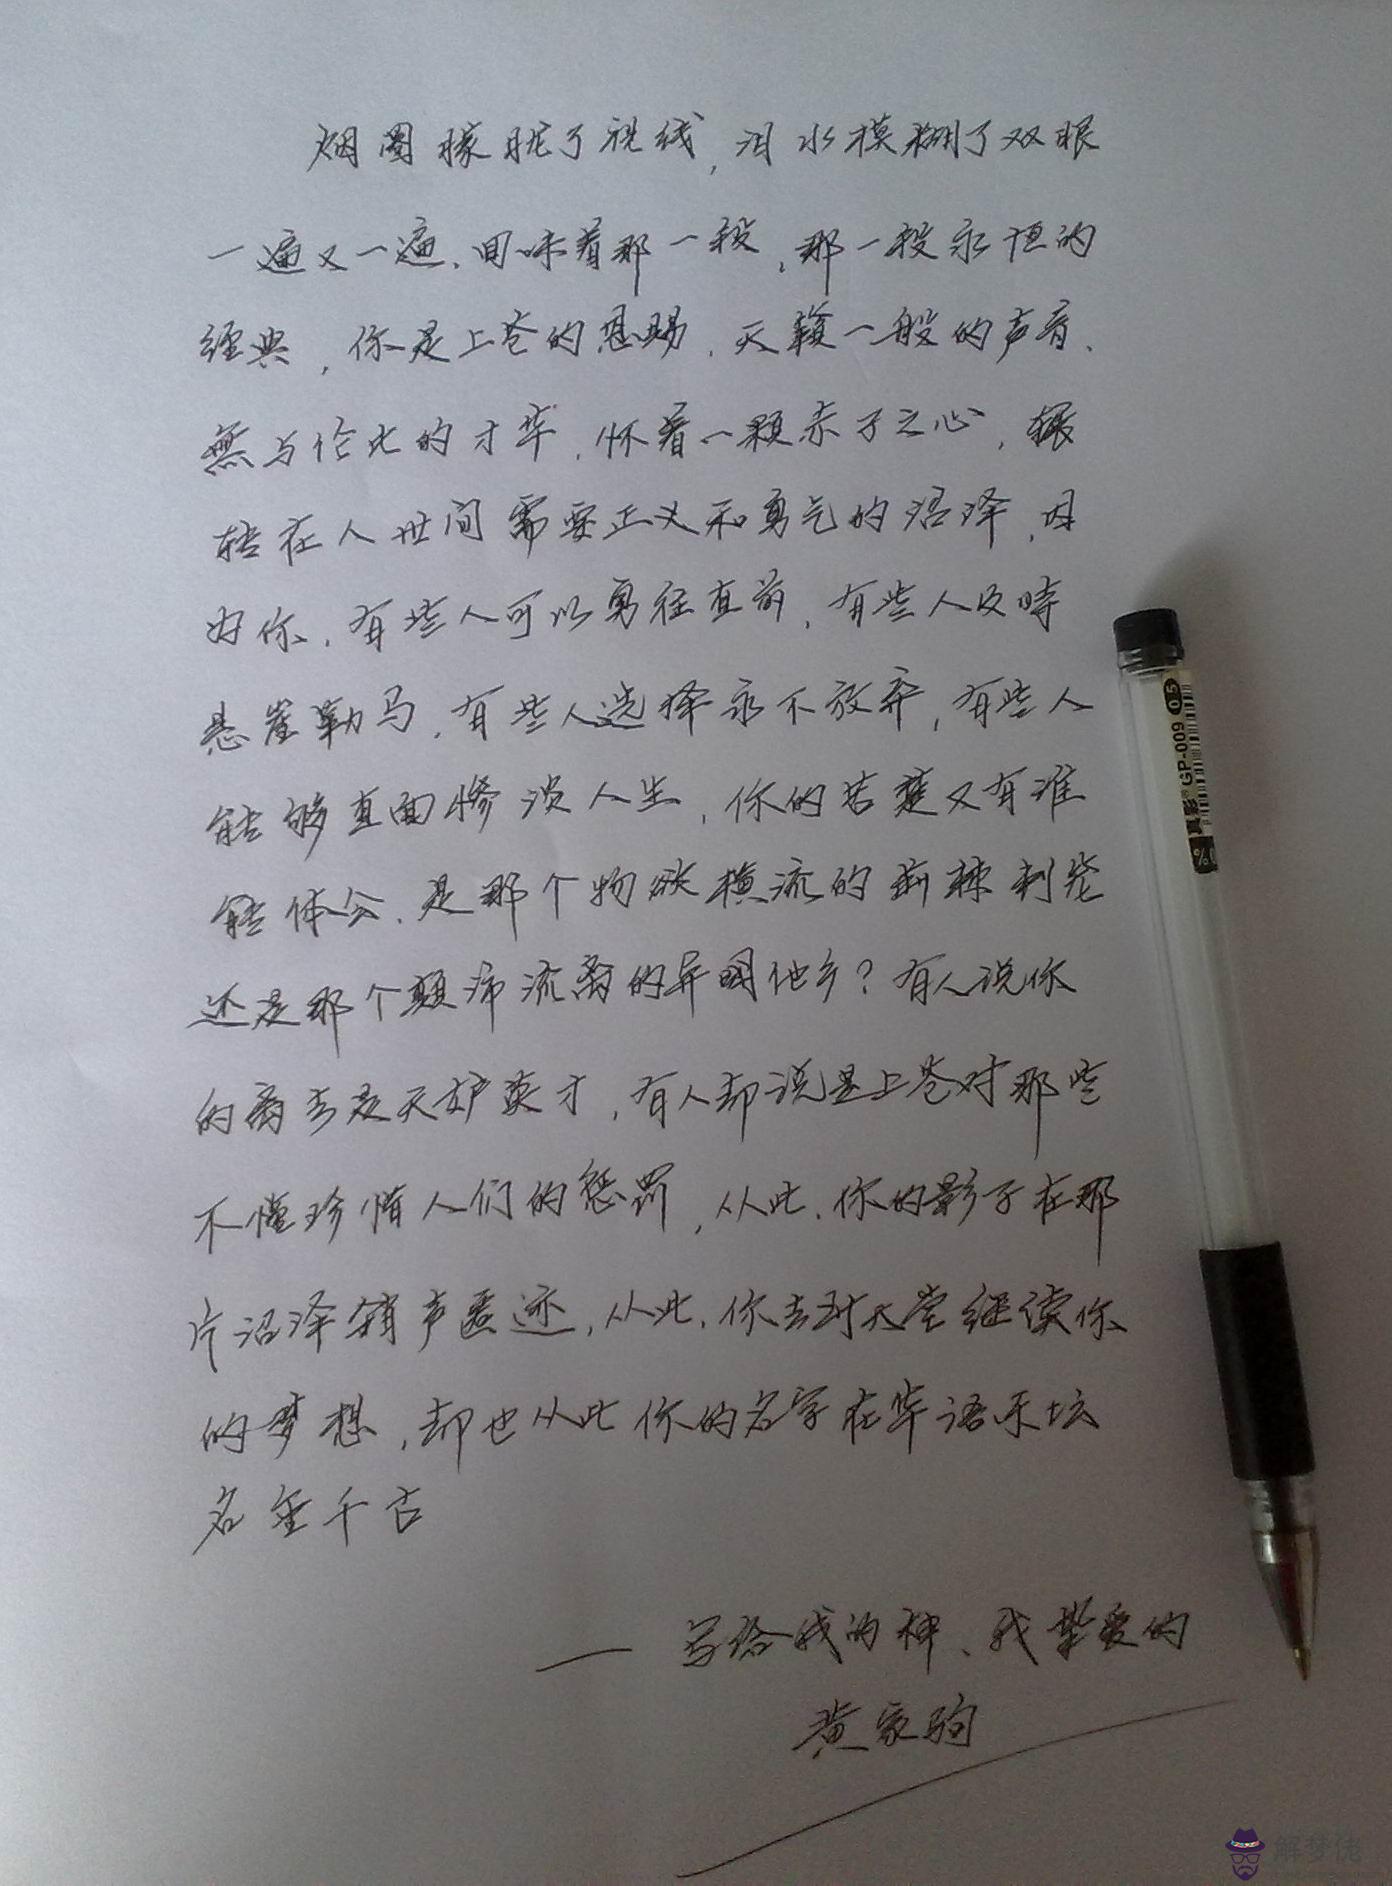 烟圈朦胧了视线,泪水模糊了双眼
一遍又一遍,回味着那一段,那一段永恒的
经典,你是上苍的恩赐,天籁一般的声音,
無与伦比的才华,怀着一颗赤子之心,辗
转在人世间需要正义和勇气的沼泽,因
为你,有些人可以勇往直前,有些人及時
悬崖勒马,有些人选择永不放弃,有些人
能够直面惨淡人生,你的苦楚又有谁
能体会,是那个物欲横流的荆棘利笼
还是那个颠沛流离的异国他乡?有人说你
的离去是天妒英才,有人却说是上苍对那些
不懂珍惜人们的惩罚,从此,你的影子在那
片沼泽销声匿迹,从此,你去到天堂继续你
的梦想,却也从此你的名字在华语乐坛
名垂千古
—— 写给我的神、我挚爱的
黄家驹
真彩 GP-009 0.5
解梦佬